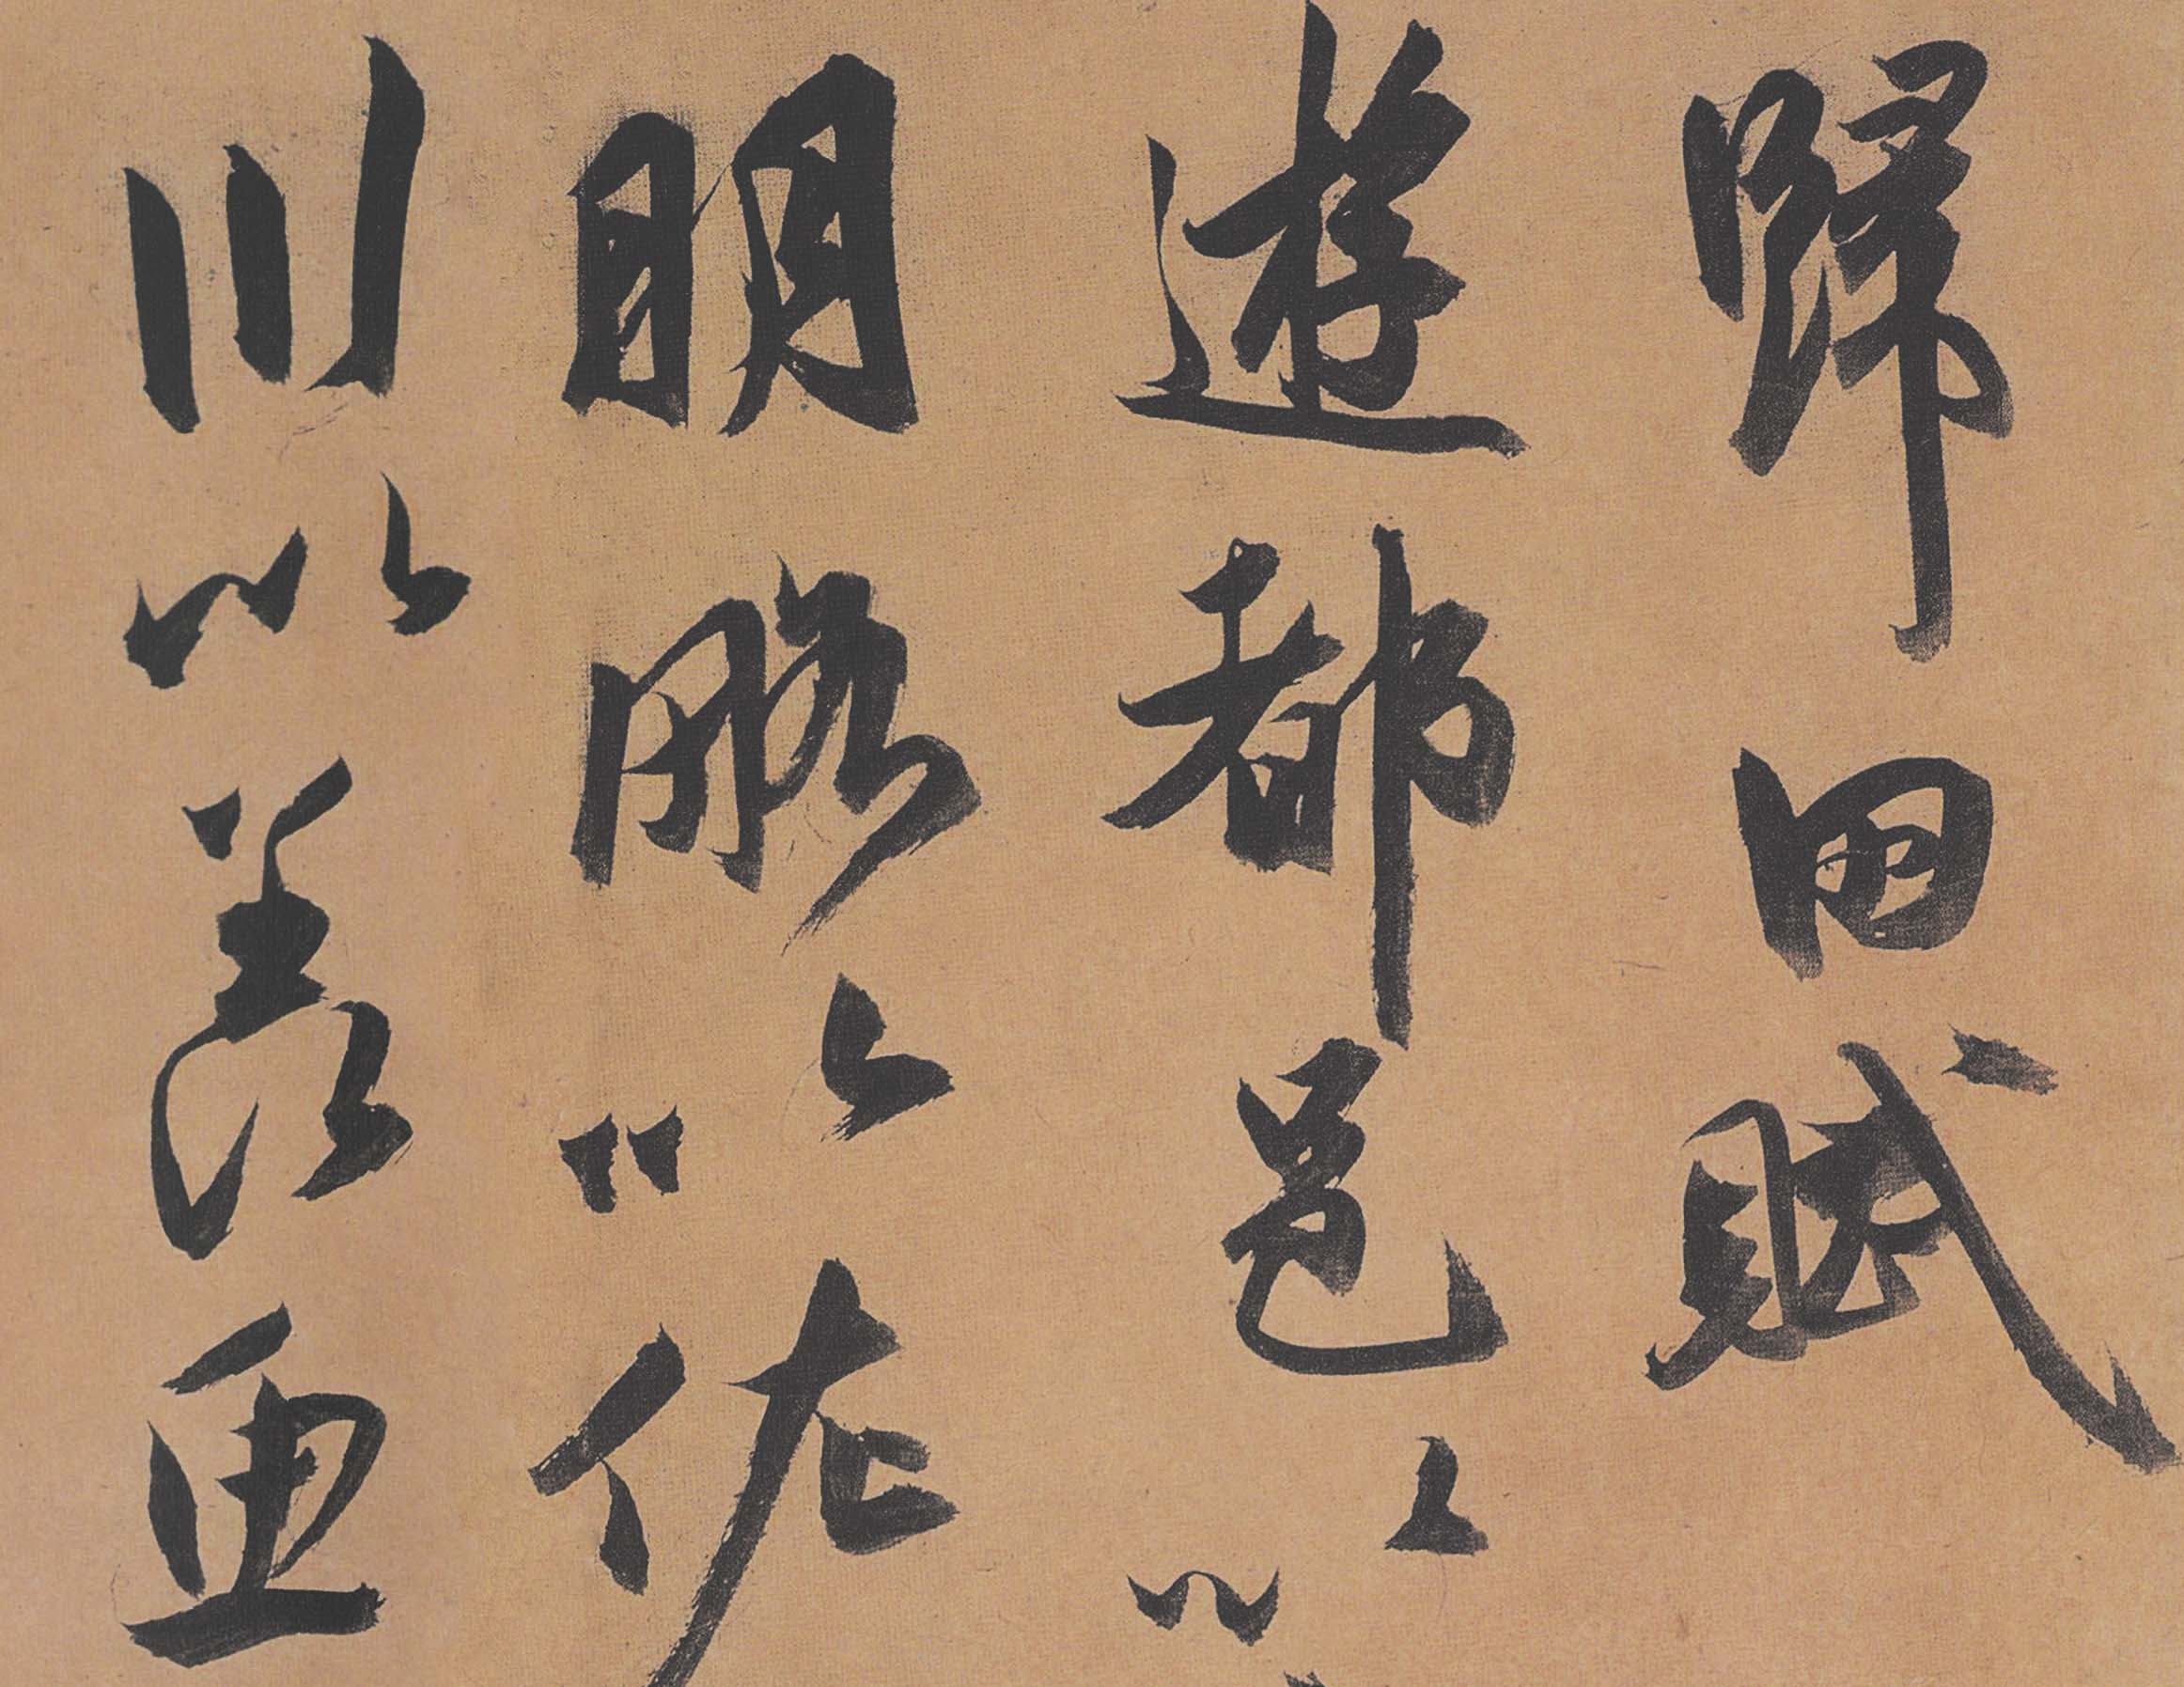 歸田賦
遊都邑以
明略以佐
川以羨魚